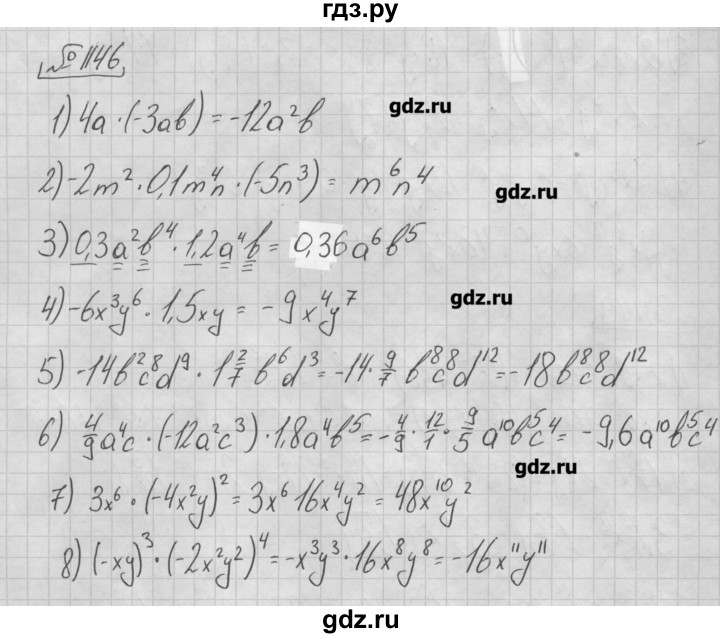 гдз.ру
№1146
1) 4a·(-3ab) = -12a²b
gdz.ru
2) -2m²·0,1m⁴n·(-5n³) = m⁶n⁴
gdz.ru
3) 0,3a²b⁴·1,2a⁴b = 0,36a⁶b⁵
4) -6x³y⁶·1,5xy = -9x⁴y⁷
gdz.ru
5) -14b²c⁸d⁹·1 2/7 b⁶d³ = -14·9/7 b⁸c⁸d¹² = -18b⁸c⁸d¹²
6) 4/9 a⁴c·(-12a²c³)·1,8a⁴b⁵ = -4/9·12/1·9/5 a¹⁰b⁵c⁴ = -9,6a¹⁰b⁵c⁴
gdz.ru
7) 3x⁶·(-4x²y)² = 3x⁶ 16x⁴y² = 48x¹⁰y²
8) (-xy)³·(-2x²y²)⁴ = -x³y³·16x⁸y⁸ = -16x¹¹y¹¹
gdz.ru